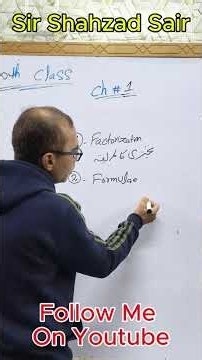 Sir Shahzad Sair
Class
Ch # 1
①- Factorization
② - Formulae
Follow Me
On Youtube